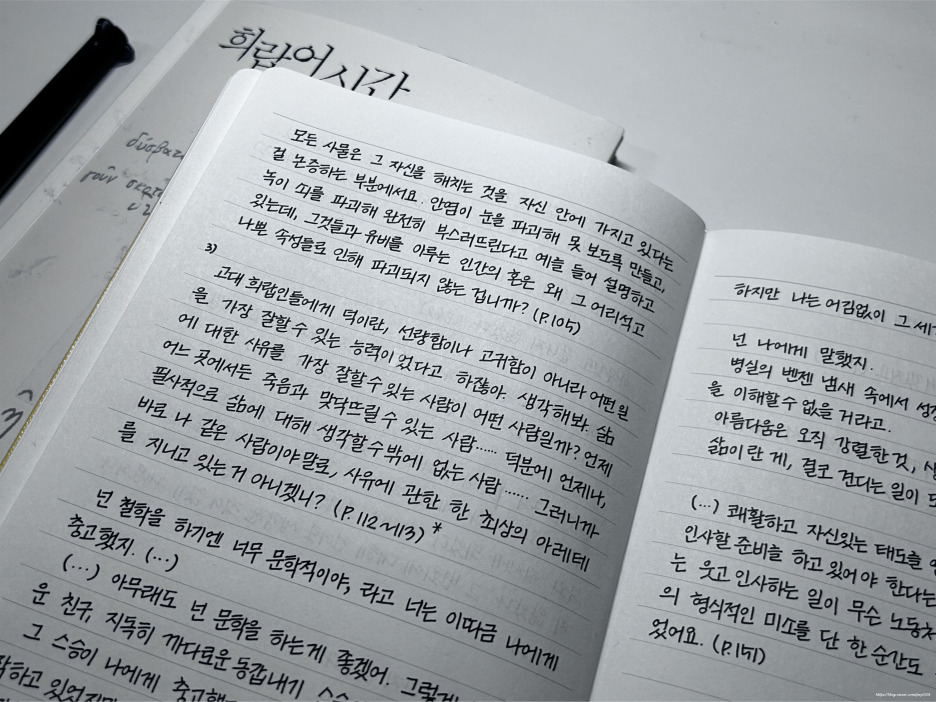 희랍어 시간
모든 사물은 그 자신을 해치는 것을 자신 안에 가지고 있다는
걸 논증하는 부분에서요. 안염이 눈을 파괴해 못 보도록 만들고,
녹이 쇠를 파괴해 완전히 부스러뜨린다고 예를 들어 설명하고
있는데, 그것들과 유비를 이루는 인간의 혼은 왜 그 어리석고
나쁜 속성들로 인해 파괴되지 않는 겁니까? (P.105)
3)
고대 희랍인들에게 덕이란, 선량함이나 고귀함이 아니라 어떤 일
을 가장 잘할 수 있는 능력이었다고 하잖아. 생각해봐. 삶
에 대한 사유를 가장 잘할 수 있는 사람이 어떤 사람일까? 언제
어느 곳에서든 죽음과 맞닥뜨릴 수 있는 사람...... 덕분에 언제나,
필사적으로 삶에 대해 생각할 수밖에 없는 사람...... 그러니까
바로 나 같은 사람이야말로, 사유에 관한 한 최상의 아레테
를 지니고 있는 거 아니겠니? (P.112~113)*
넌 철학을 하기엔 너무 문학적이야, 라고 너는 이따금 나에게
충고했지. (...)
(...) 아무래도 넌 문학을 하는게 좋겠어. 그렇게
운 친구, 지독히 까다로운 동갑내기 스승
그 스승이 나에게 충고했
하고 있었지만
하지만 나는 어김없이 그 세
넌 나에게 말했지.
병실의 벤젠 냄새 속에서 성장
을 이해할 수 없을 거라고.
아름다움은 오직 강렬한 것,
삶이란 게, 결코 견디는 일이
(...) 쾌활하고 자신있는 태도를
인사할 준비를 하고 있어야 한다는
는 웃고 인사하는 일이 무슨 노동처
의 형식적인 미소를 단 한 순간도
었어요. (P.151)